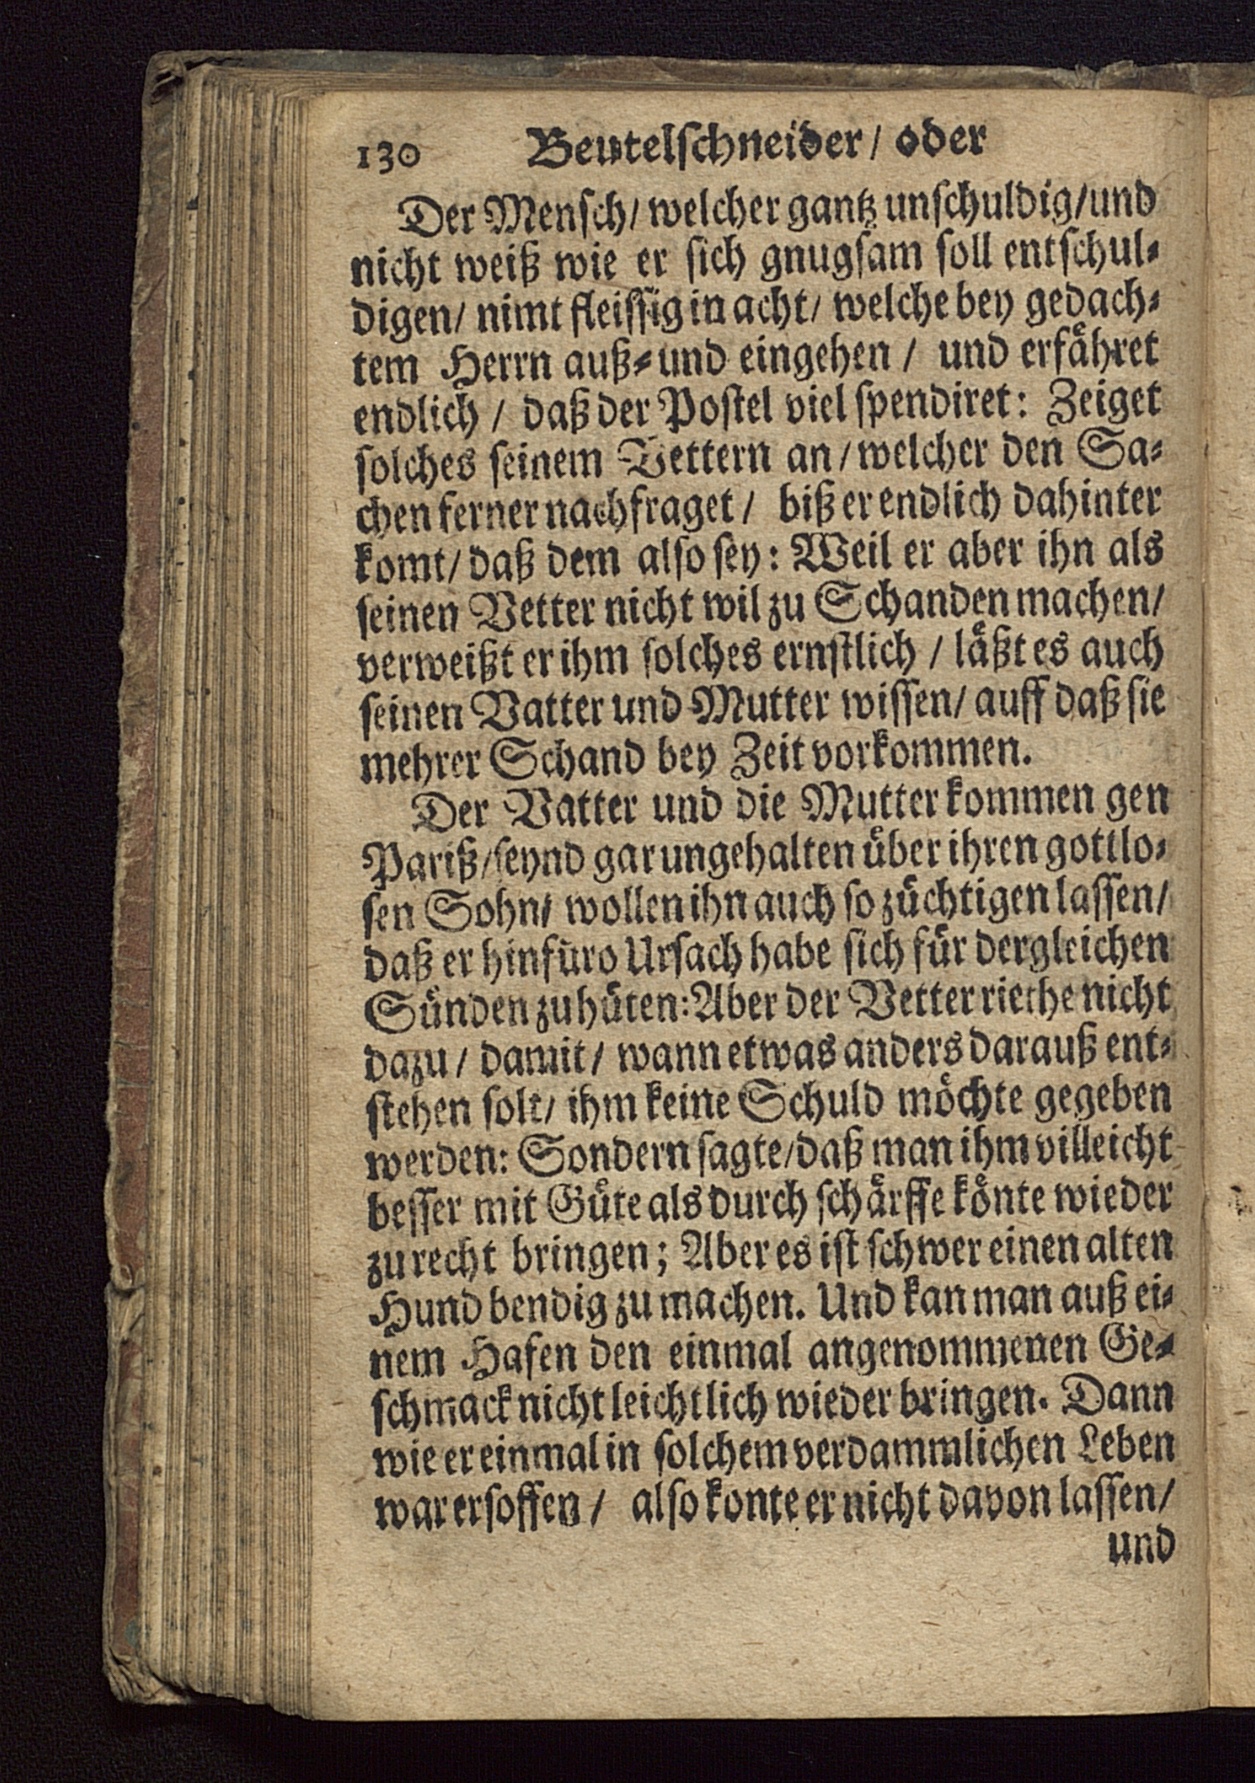 130 Beutelschneider / oder
Der Mensch / welcher gantz unschuldig / und
nicht weiß wie er sich gnugsam soll entschul-
digen / nimt fleissig in acht / welche bey gedach-
tem Herrn auß- und eingehen / und erfähret
endlich / daß der Postel viel spendiret: Zeiget
solches seinem Vettern an / welcher den Sa-
chen ferner nachfraget / biß er endlich dahinter
komt / daß dem also sey: Weil er aber ihn als
seinen Vetter nicht wil zu Schanden machen /
verweißt er ihm solches ernstlich / läßt es auch
seinen Vatter und Mutter wissen / auff daß sie
mehrer Schand bey Zeit vorkommen.
Der Vatter und die Mutter kommen gen
Pariß / seynd gar ungehalten über ihren gottlo-
sen Sohn / wollen ihn auch so züchtigen lassen /
daß er hinfüro Ursach habe sich für dergleichen
Sünden zu hüten: Aber der Vetter riethe nicht
dazu / damit / wann etwas anders darauß ent-
stehen solt / ihm keine Schuld möchte gegeben
werden: Sondern sagte / daß man ihm villeicht
besser mit Güte als durch schärffe könte wieder
zu recht bringen; Aber es ist schwer einen alten
Hund bendig zu machen. Und kan man auß ei-
nem Hafen den einmal angenommenen Ge-
schmack nicht leichtlich wieder bringen. Dann
wie er einmal in solchem verdammlichen Leben
war ersoffen / also konte er nicht davon lassen /
und